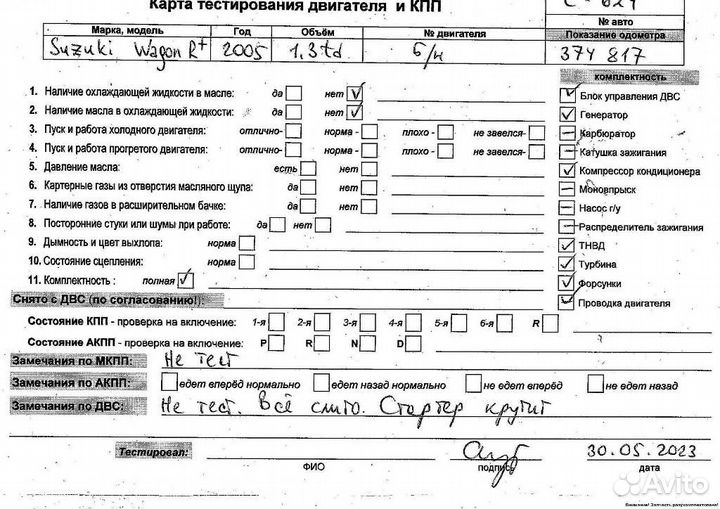 Карта тестирования двигателя и КПП
С - 624
№ авто
Марка, модель Год Объём № двигателя Показание одометра
Suzuki Wagon R+ 2005 1.3td б/н 374 817
комплектность
1. Наличие охлаждающей жидкости в масле: да нет
2. Наличие масла в охлаждающей жидкости: да нет
3. Пуск и работа холодного двигателя: отлично- норма - плохо - не завелся-
4. Пуск и работа прогретого двигателя: отлично- норма - плохо - не завелся-
5. Давление масла: есть нет
6. Картерные газы из отверстия масляного щупа: да нет
7. Наличие газов в расширительном бачке: да нет
8. Посторонние стуки или шумы при работе: да нет
9. Дымность и цвет выхлопа: норма
10. Состояние сцепления: норма
11. Комплектность : полная
Блок управления ДВС
Генератор
Карбюратор
Катушка зажигания
Компрессор кондиционера
Моновпрыск
Насос г/у
Распределитель зажигания
ТНВД
Турбина
Форсунки
Проводка двигателя
Снято с ДВС (по согласованию!):
Состояние КПП - проверка на включение: 1-я 2-я 3-я 4-я 5-я 6-я R
Состояние АКПП - проверка на включение: P R N D
Замечания по МКПП: Не тест
Замечания по АКПП: едет вперёд нормально едет назад нормально не едет вперёд не едет назад
Замечания по ДВС: Не тест. Всё слито. Стартер крутит
Тестировал: 30.05.2023
ФИО подпись дата
Avito